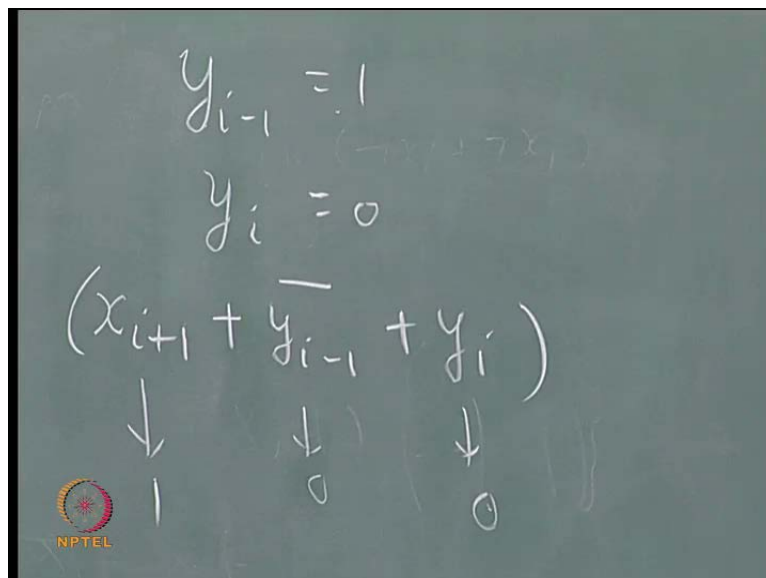 y_{i-1} = 1
y_i = 0
(x_{i+1} + \overline{y_{i-1}} + y_i)
↓ ↓ ↓
1 0 0
NPTEL